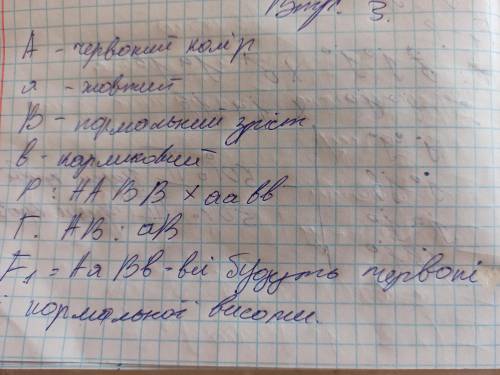 Впр. 3.
А - червоний колір
а - жовтий
В - нормальний зріст
в - карликовий
Р: ААВВ × аавв
Г: АВ; аВ
F₁ = АаВв - всі будуть червоні
і нормальної висоти.